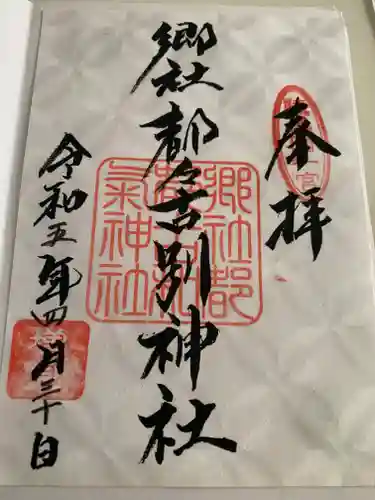 奉拝
郷社都々古別神社
令和五年四月三十日
郷社都
氣神社